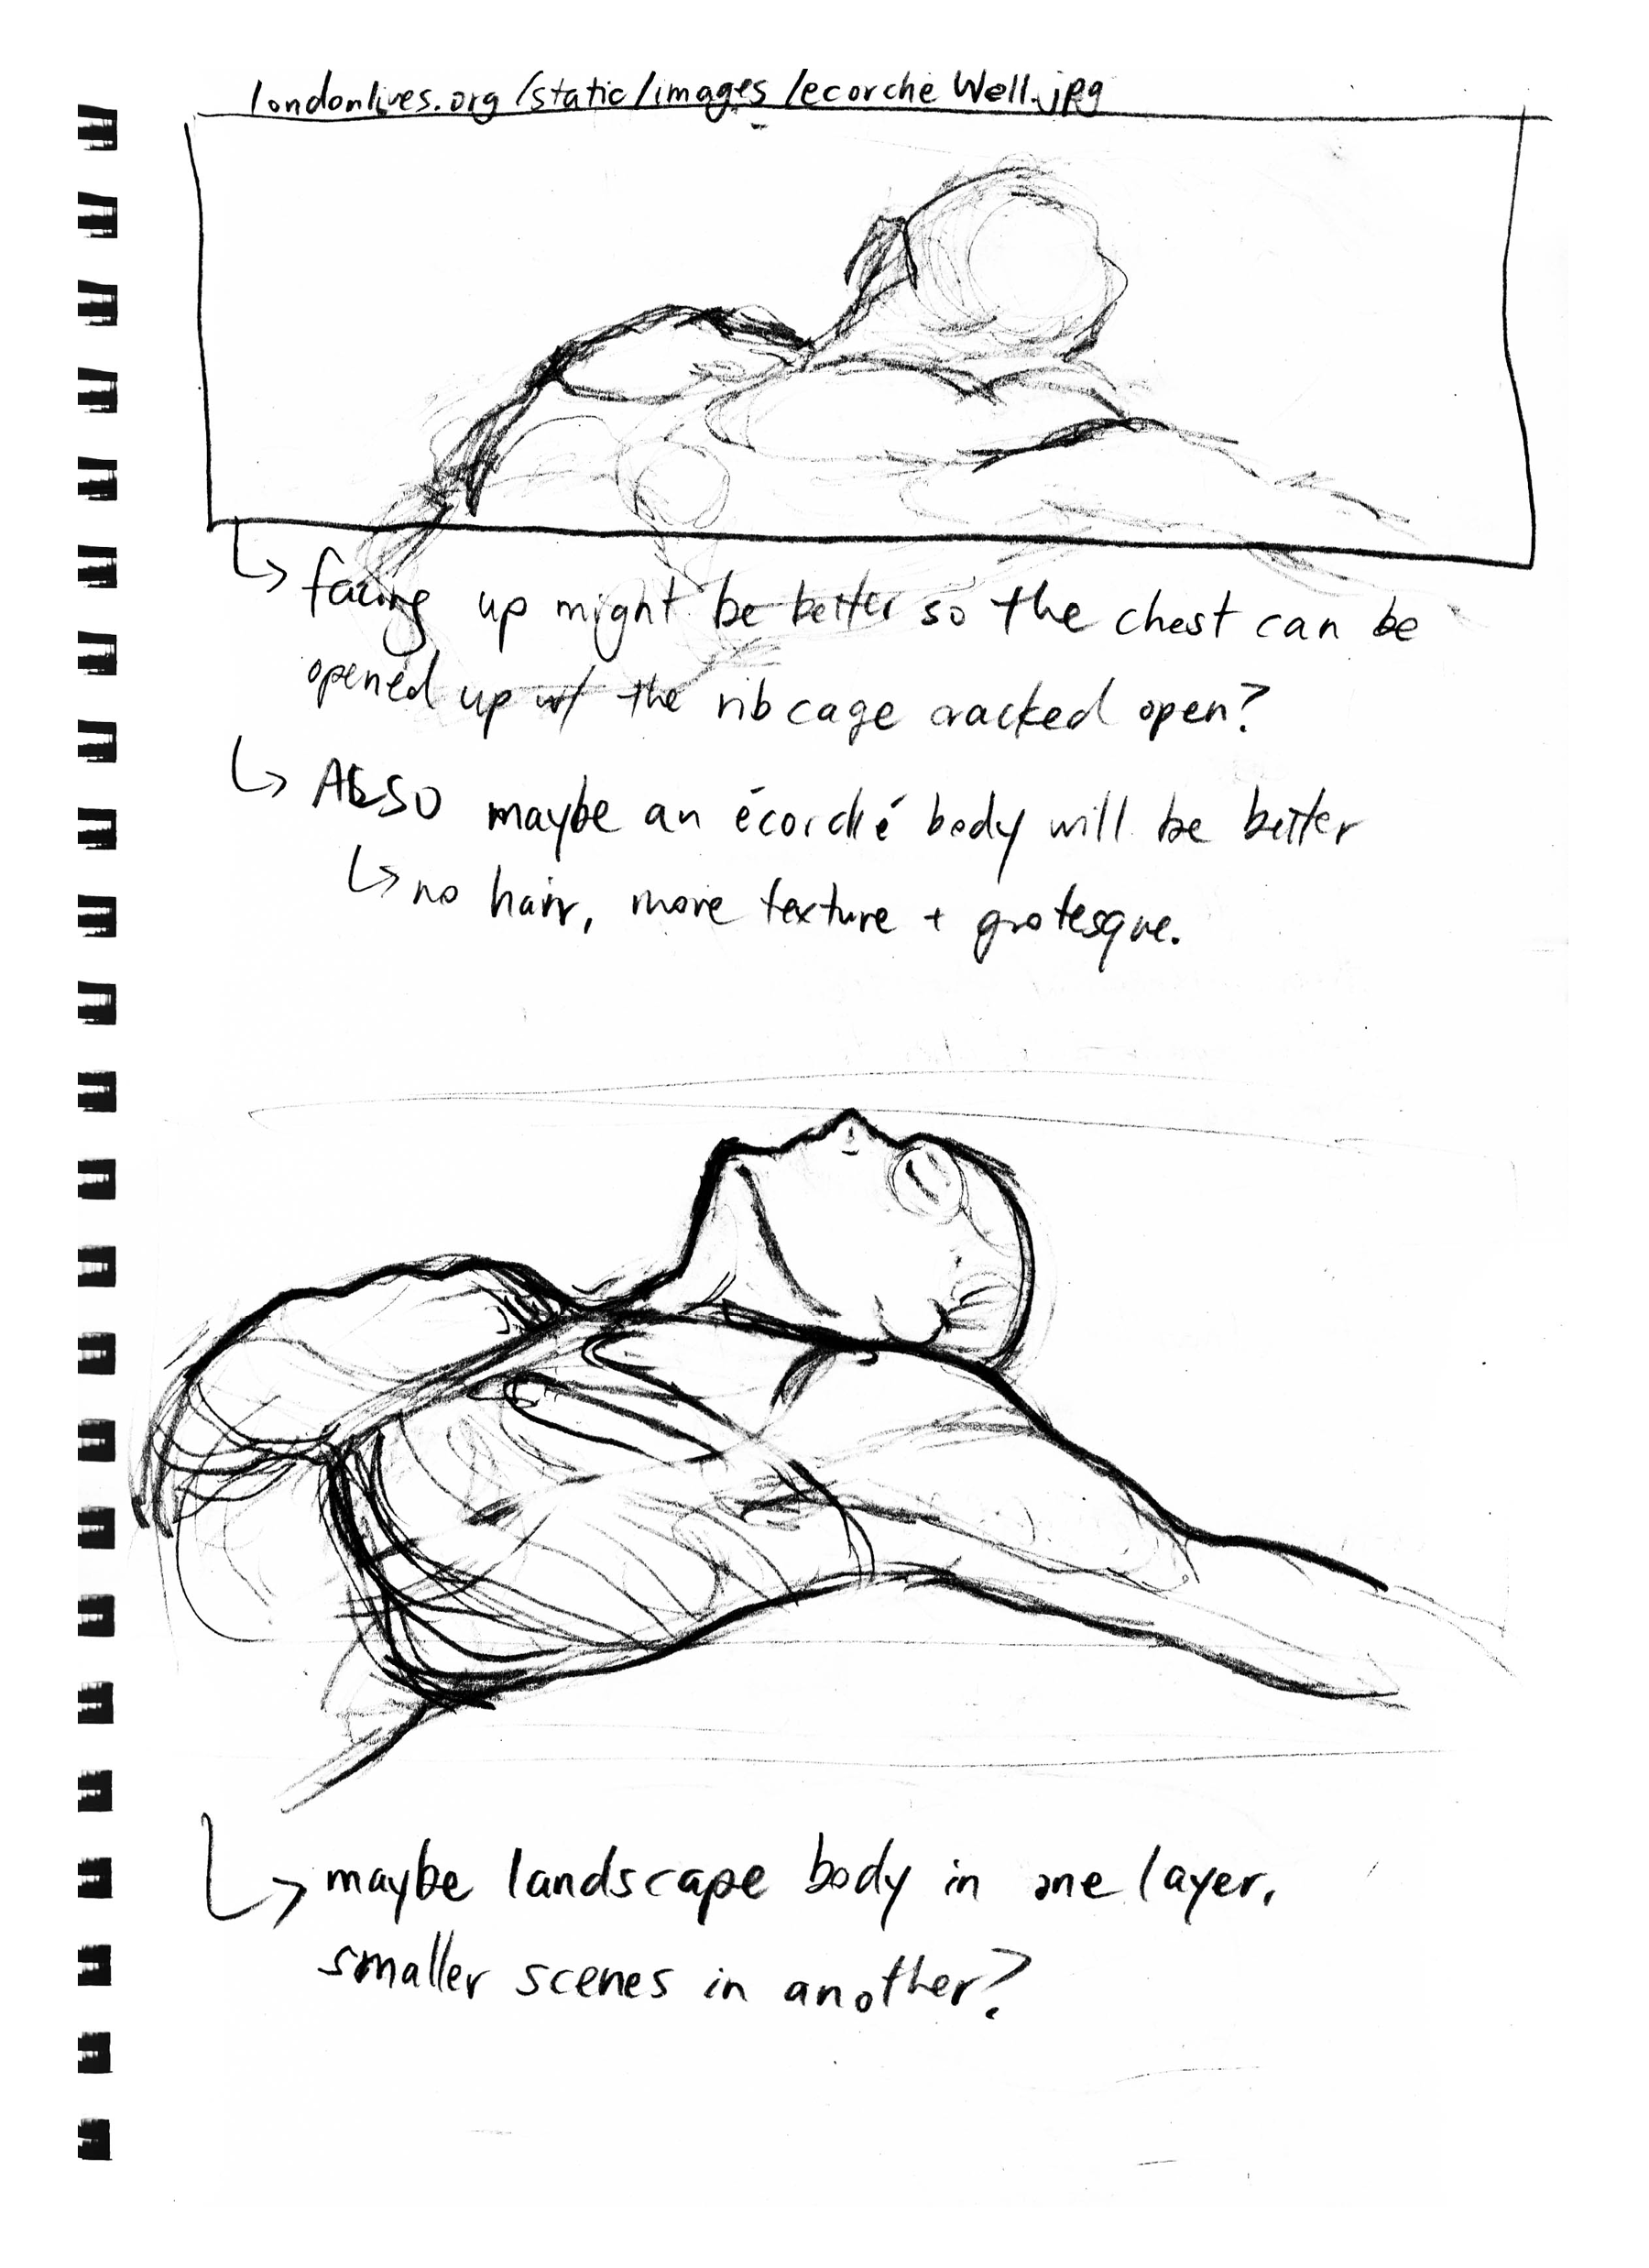 londonlives.org/static/images/ecorcheWell.jpg
↳ facing up might be better so the chest can be
opened up w/ the ribcage cracked open?
↳ ALSO maybe an écorché body will be better
↳ no hair, more texture + grotesque.
↳ maybe landscape body in one layer,
smaller scenes in another?